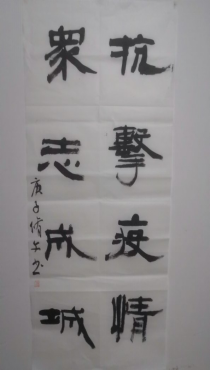 抗擊疫情
衆志成城
庚子